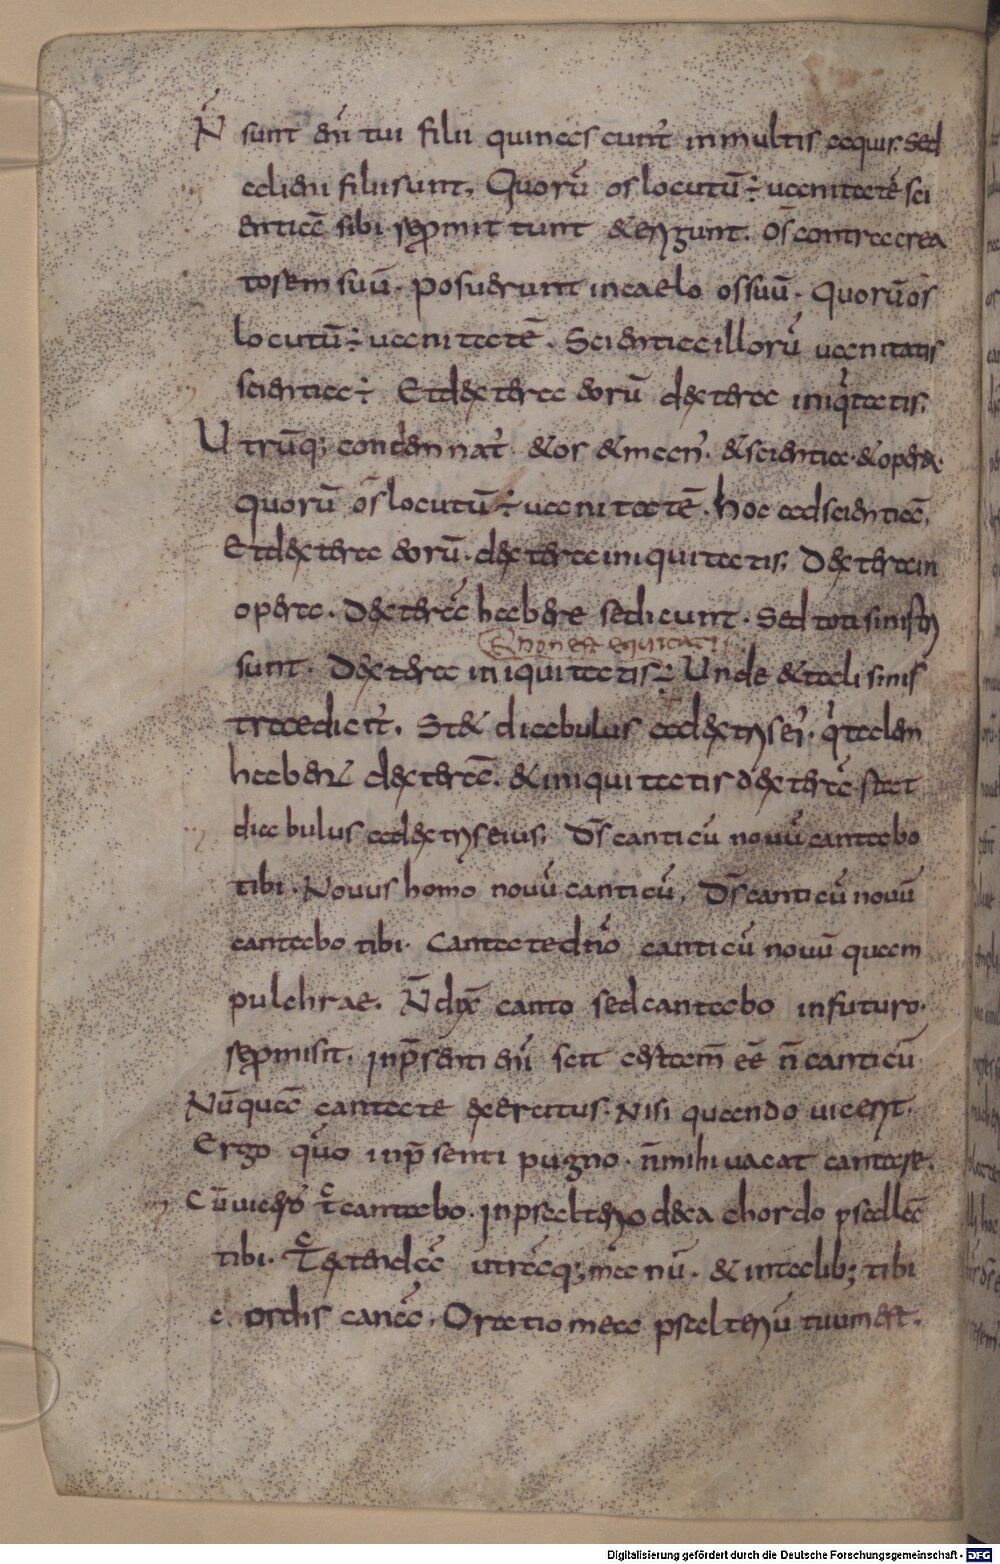 N̄ sunt eni tui filii qui nascunt᷑ in multis aquis. Sed
alieni filii sunt. Quorū os locutū ÷ uanitatē sci
entiā sibi repmittunt & erigunt. Os contra crea
torem suū. posuerunt in caelo os suū. Quorū os
locutū ÷ uanitatē. Scientia illorū uanitatis
scientia ÷ Et dextera eorū dextera iniq̇tatis.
Utrūq; condemnat᷑ & os & man᷑. & scientia. & opera.
Quorū os locutū ÷ uanitatē. hoc ad scientiā.
Et dextera eorū. dextera iniquitatis. Dextera in
opere. Dexterā habere se dicunt. Sed toti sinistri
non est equitatis
sunt. Dextera iniquitatis ÷ Unde & tali sinis
tra dicit᷑. Stet diabulus ad dextris ei᷑. q̇ talem
haber& dexterā. & iniquitatis dexterā. stet
diabulus ad dextris eius. Dš canticū nouū cantabo
tibi. Nouus homo nouū canticū. Dš canticū nouū
cantabo tibi. Cantate dn̄o canticū nouū quam
pulchrae. N̄ dix̄ canto sed cantabo in futuro.
repmisit. in p̄senti eni scit certam̄ eē n̄ canticū
Nūquā cantate exercitus. Nisi quando uicerit.
Ergo quo in p̄senti pugno. n̄ mihi uacat cantare.
Cū uicero tc̄ cantabo. in psalterio deca chordo psallā
tibi. Tc̄ extendā utrāq; manū. & in talib; tibi
chordis canā. Oratio mea psalteriū tuum est.